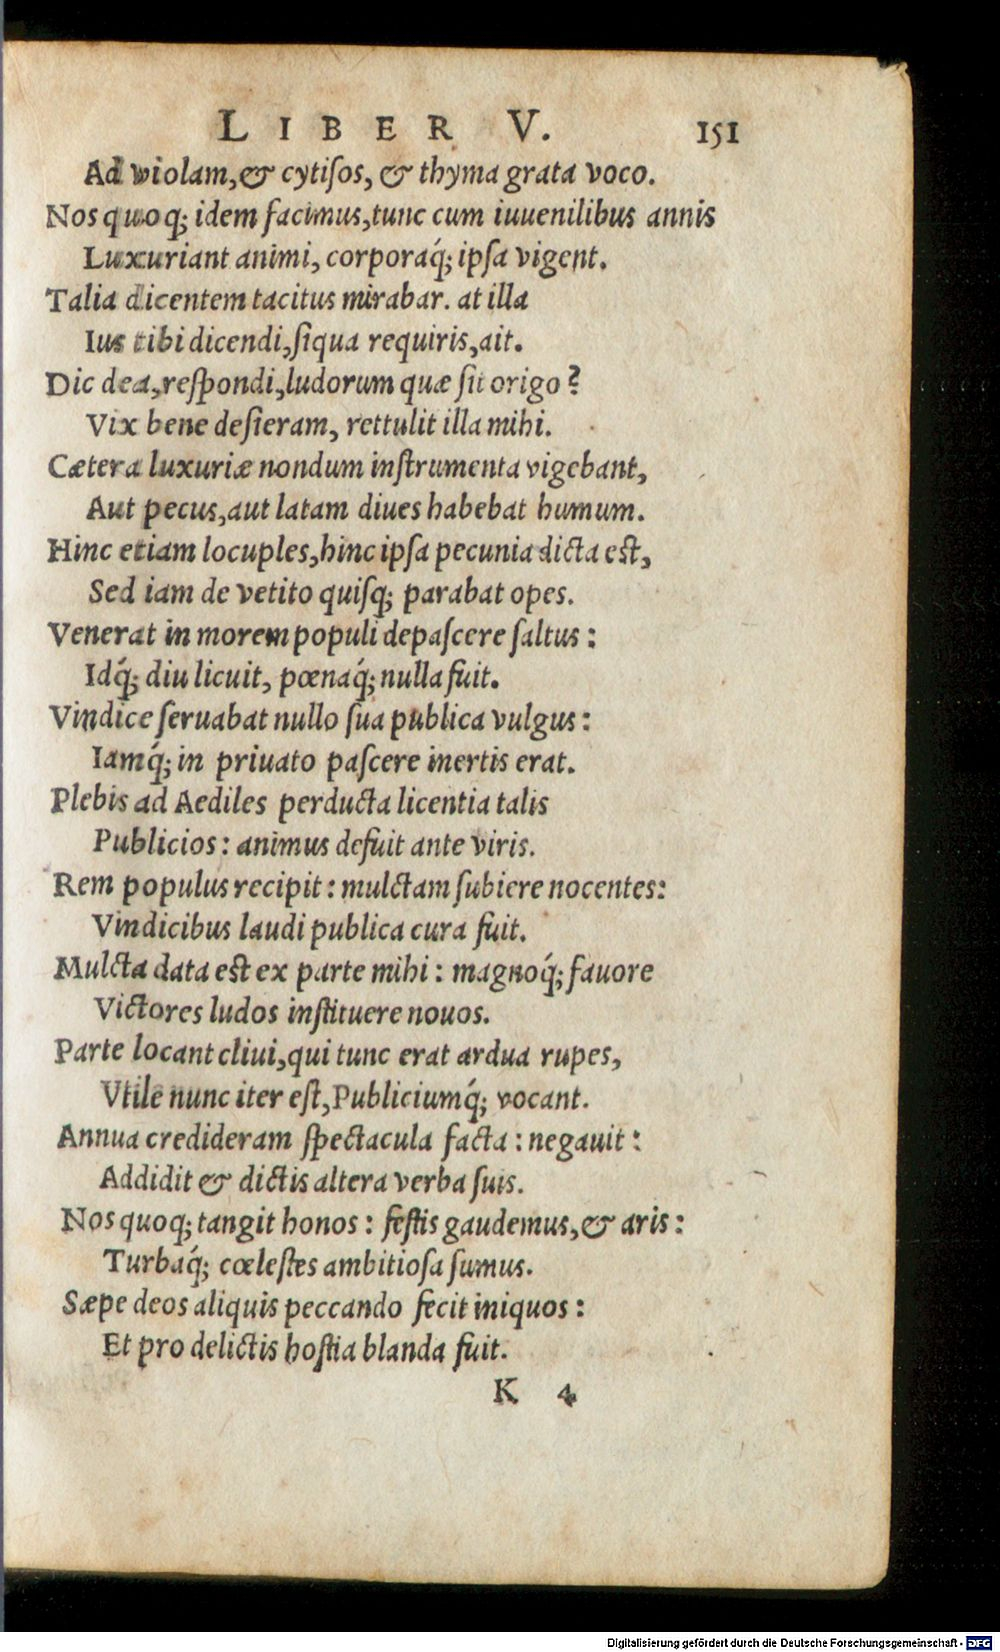 LIBER V. 151
Ad violam, & cytiſos, & thyma grata voco.
Nos quoq; idem facimus, tunc cum iuuenilibus annis
Luxuriant animi, corporaq́; ipſa vigent.
Talia dicentem tacitus mirabar. at illa
Ius tibi dicendi, ſiqua requiris, ait.
Dic dea, reſpondi, ludorum quæ ſit origo?
Vix bene deſieram, rettulit illa mihi.
Cætera luxuriæ nondum inſtrumenta vigebant,
Aut pecus, aut latam diues habebat humum.
Hinc etiam locuples, hinc ipſa pecunia dicta eſt,
Sed iam de vetito quiſq; parabat opes.
Venerat in morem populi depaſcere ſaltus:
Idq́; diu licuit, pœnaq́; nulla fuit.
Vindice ſeruabat nullo ſua publica vulgus:
Iamq́; in priuato paſcere inertis erat.
Plebis ad Aediles perducta licentia talis
Publicios: animus defuit ante viris.
Rem populus recipit: mulctam ſubiere nocentes:
Vindicibus laudi publica cura fuit.
Mulcta data eſt ex parte mihi: magnoq́; fauore
Victores ludos inſtituere nouos.
Parte locant cliui, qui tunc erat ardua rupes,
Vtile nunc iter eſt, Publiciumq́; vocant.
Annua credideram ſpectacula facta: negauit:
Addidit & dictis altera verba ſuis.
Nos quoq; tangit honos: feſtis gaudemus, & aris:
Turbaq́; cœleſtes ambitioſa ſumus.
Sæpe deos aliquis peccando fecit iniquos:
Et pro delictis hoſtia blanda fuit.
K 4
Digitalisierung gefördert durch die Deutsche Forschungsgemeinschaft - DFG